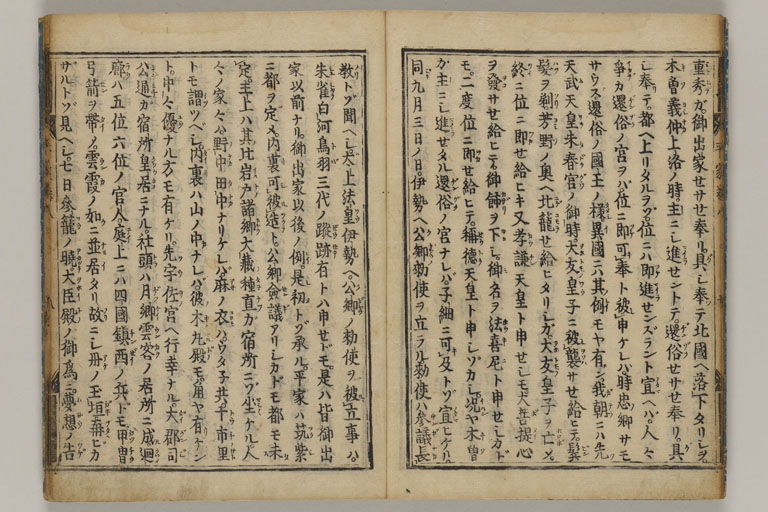 重秀ガ御出家セサセ奉リ具シ奉テ北國ヘ落下タリシヲ
木曽義仲上洛ノ時主ニシ進セントテ還俗セサセ奉リ具
シ奉テ都ヘ上リタルヲゾ位ニハ即進センズラント宣ヘハ人々
爭カ還俗ノ宮ヲハ位ニ即可奉ト被申ケレハ時忠卿サモ
サウス還俗ノ國主ノ様異國ニハ其例モヤ有ン我朝ニハ先
天武天皇未春宮ノ御時大友皇子ニ被襲サセ給ヒテ鬢
髪ヲ剃芳野ノ奥ヘ逃籠セ給ヒタリシガ大友皇子ヲ亡メ
終ニ位ニ即セ給ヒキ又孝謙天皇ト申セシモ大菩提心
ヲ發サセ給ヒテ御飾ヲ下シ御名ヲ法喜尼ト申セシカド
モ二度位ニ即セ給ヒテ稱徳天皇ト申シゾカシ况ヤ木曽
ガ主ニシ進セタル還俗ノ宮ナレハ子細ニ可及トゾ宣ヒケル
同九月三日ノ日伊勢ヘ公卿勅使ヲ立ラル勅使ハ參議長
教トゾ聞ヘシ太上法皇伊勢ヘ公卿ノ勅使ヲ被立事ハ
朱雀白河鳥羽三代ノ蹤跡有トハ申セドモ是ハ皆御出
家以前ナリ御出家以後ノ例是初トゾ承ル平家ハ筑紫
ニ都ヲ定メ内裏可被造ト公卿僉議アリシカドモ都モ未
定主上ハ其比岩戸諸卿大藏種直ガ宿所ニゾ坐ケル人
々ノ家々ハ野中田中ナリケレハ麻ノ衣ハウタ子共十市里
トモ謂ツベシ内裏ハ山ノ中ナレハ彼木丸殿モ角ヤ有ケン
ト中々優ナル方モ有ケリ先宇佐宮ヘ行幸ナル大郡司
公通ガ宿所皇居ニナル社頭ハ月卿雲客ノ居所ニ成廻
廊ハ五位六位ノ官人庭上ニハ四國鎮西ノ兵ドモ甲冑
弓箭ヲ帶メ雲霞ノ如ニ並居タリ故ニシ丹ノ玉垣再ヒカ
サルトゾ見ヘシ七日參籠ノ曉大臣殿ノ御為ニ夢想ノ告